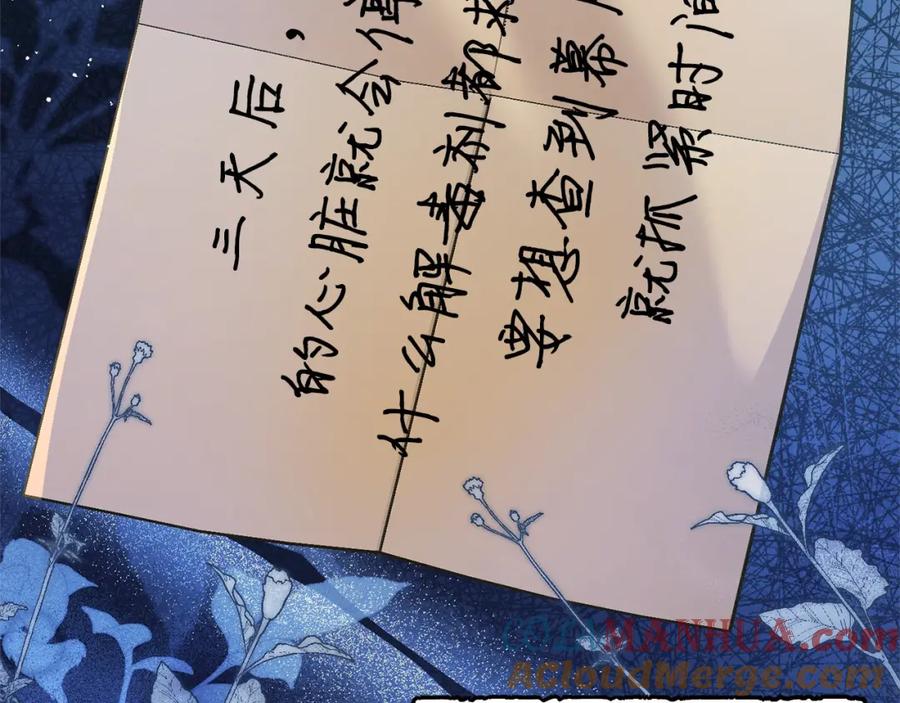 三天后，
的心脏就会停
什么解毒剂都求
要想查到幕
就抓紧时间
COLAMANHUA.com
ACloudMerge.com